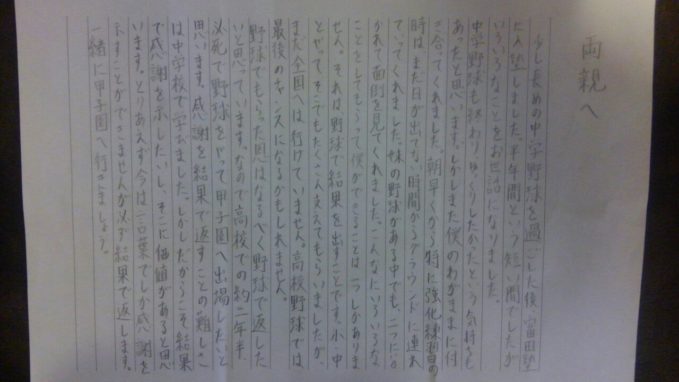 両親へ
少し長めの中学野球を過ごした後、富田塾
に入塾しました。半年間という短い間でしたが
いろいろなことをお世話になりました。
中学野球も終わりゆっくりしたかたという気持ちも
あったと思います。しかしまた僕のわがままに付
き合ってくれました。朝早くから特に強化練習の
時はまだ日が出てない時間からグラウンドに連れ
ていってくれました。妹の野球がある中でも、二つに
かれ、面倒を見てくれました。こんなにいろいろな
ことをしてもらって僕ができることは一つしかありま
せん。それは野球で結果を出すことです。小、中
とやってそこでもたくさん支えてもらいましたが、
まだ全国へは行けていません。高校野球では
最後のチャンスになるかもしれません。
野球でもらった恩はなるべく野球で返した
いと思っています。なので高校での約二年半、
必死で野球をやって甲子園へ出場したいと
思います。感謝を結果で返すことの難しさ
は中学校で学びました。しかしだからこそ結果
で感謝を示したいし、そこに価値があると思
います。とりあえず今は言葉でしか感謝を
示すことができませんが必ず結果で返します。
一緒に甲子園へ行きましょう。